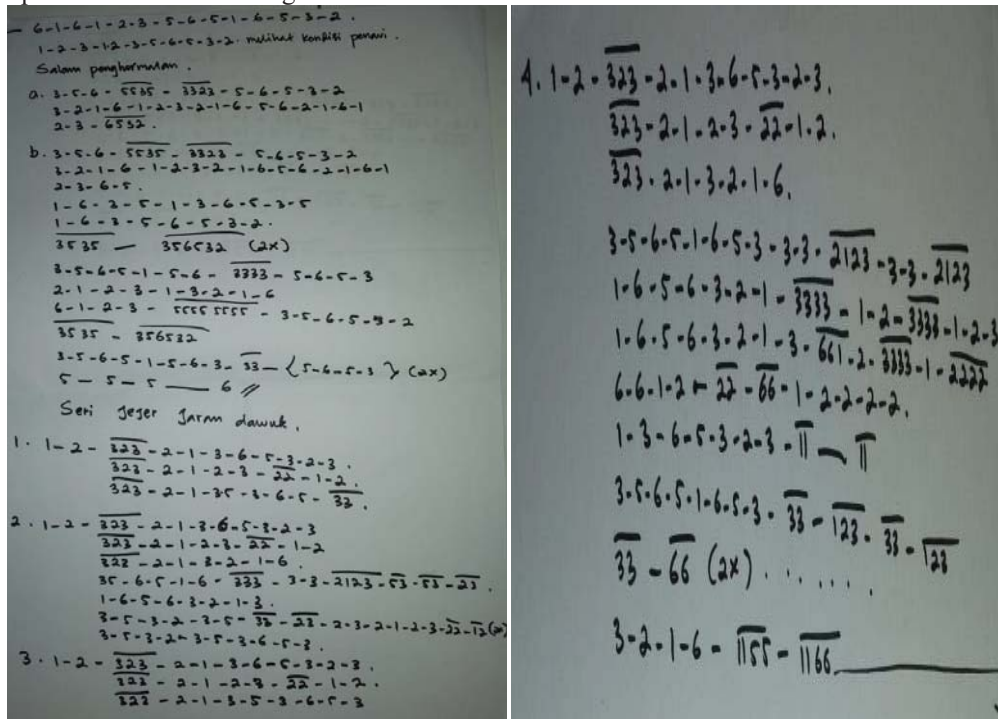 - 6-1-6-1-2-3-5-6-5-1-6-5-3-2.
1-2-3-1-2-3-5-6-5-3-2. melihat kondisi penari.
Salam penghormatan.
a. 3-5-6- 5535 - 3323 - 5-6-5-3-2
3-2-1-6-1-2-3-2-1-6-5-6-2-1-6-1
2-3-6532.
b. 3-5-6- 5535 - 3323 - 5-6-5-3-2
3-2-1-6-1-2-3-2-1-6-5-6-2-1-6-1
2-3-6-5.
1-6-3-5-1-3-6-5-3-5
1-6-3-5-6-5-3-2.
3535 — 356532 (2x)
3-5-6-5-1-5-6- 3333 - 5-6-5-3
2-1-2-3-1-3-2-1-6
6-1-2-3- 5555 5555 - 3-5-6-5-3-2
3535 - 356532
3-5-6-5-1-5-6-3- 33 - {5-6-5-3} (2x)
5 - 5 - 5 — 6 //
Seri Jejer Jaran dawuk.
1. 1-2- 323 -2-1-3-6-5-3-2-3.
323 -2-1-2-3- 22 -1-2.
323 -2-1-3-5-3-6-5- 33.
2. 1-2- 323 -2-1-3-6-5-3-2-3
323 -2-1-2-3- 22 -1-2
323 -2-1-3-2-1-6.
35-6-5-1-6- 333 - 3-3- 2123 - 53 - 53 - 23.
1-6-5-6-3-2-1-3.
3-5-3-2-3-5- 33 - 23 - 2-3-2-1-2-3- 22 - 12 (2x)
3-5-3-2-3-5-3-6-5-3.
3. 1-2- 323 -2-1-3-6-5-3-2-3.
323 -2-1-2-3- 22 -1-2.
323 -2-1-3-5-3-6-5-3
4. 1-2- 323 -2-1-3-6-5-3-2-3.
323 -2-1-2-3- 22 -1-2.
323 -2-1-3-2-1-6.
3-5-6-5-1-6-5-3-3-3- 2123 -3-3- 2123
1-6-5-6-3-2-1- 3333 -1-2- 3333 -1-2-3
1-6-5-6-3-2-1-3- 661 -2- 3333 -1- 2222
6-6-1-2- 22 - 66 -1-2-2-2-2.
1-3-6-5-3-2-3- 11 — 11
3-5-6-5-1-6-5-3- 33 - 123 - 33 - 123
33 - 66 (2x) . . . . . .
3-2-1-6- 1155 - 1166